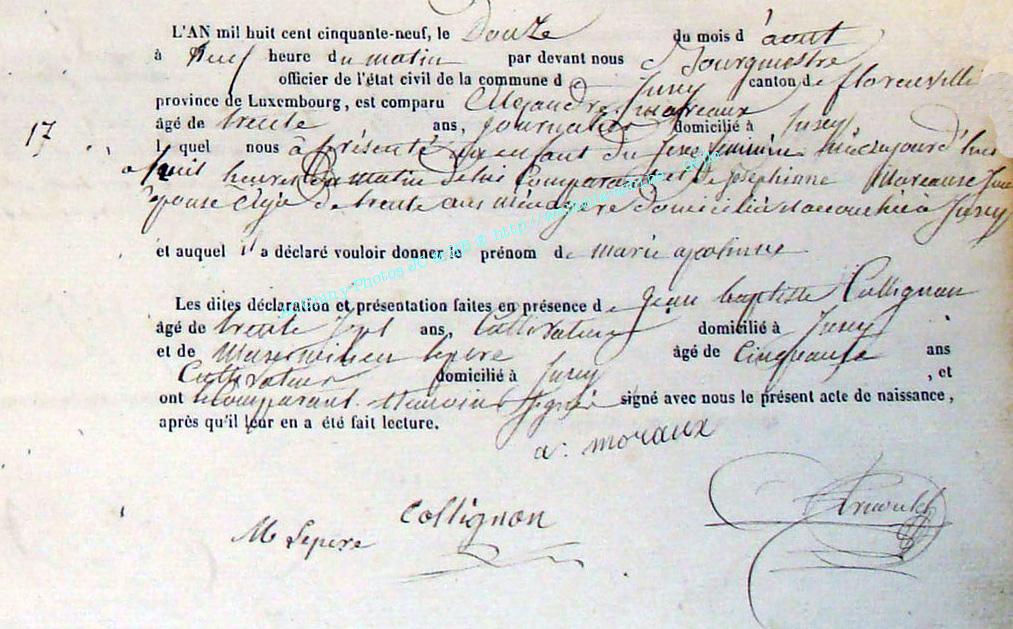 L'AN mil huit cent cinquante-neuf, le Douze du mois d'août
à Neuf heure du matin par devant nous Bourgmestre
officier de l'état civil de la commune d Jusey canton de florenville
province de Luxembourg, est comparu Alexandre Moreaux
âgé de trente ans, journalier domicilié à Jusey
17
lequel nous a présenté un enfant du sexe féminin né aujourd'hui
a huit heures du matin de lui Comparant et de Joséphinne Moreause Son
épouse agée de trente ans ménagère domiciliés a Jusey
et auquel il a déclaré vouloir donner le prénom de Marie
Les dites déclaration et présentation faites en présence de Jean baptiste Collignon
âgé de trente sept ans, Cultivateur domicilié à Jusey
et de lepère âgé de Cinquante ans
Cultivateur domicilié à Jusey , et
ont le comparant témoins signé avec nous le présent acte de naissance,
après qu'il leur en a été fait lecture.
a. moraux
Collignon
M Lepere